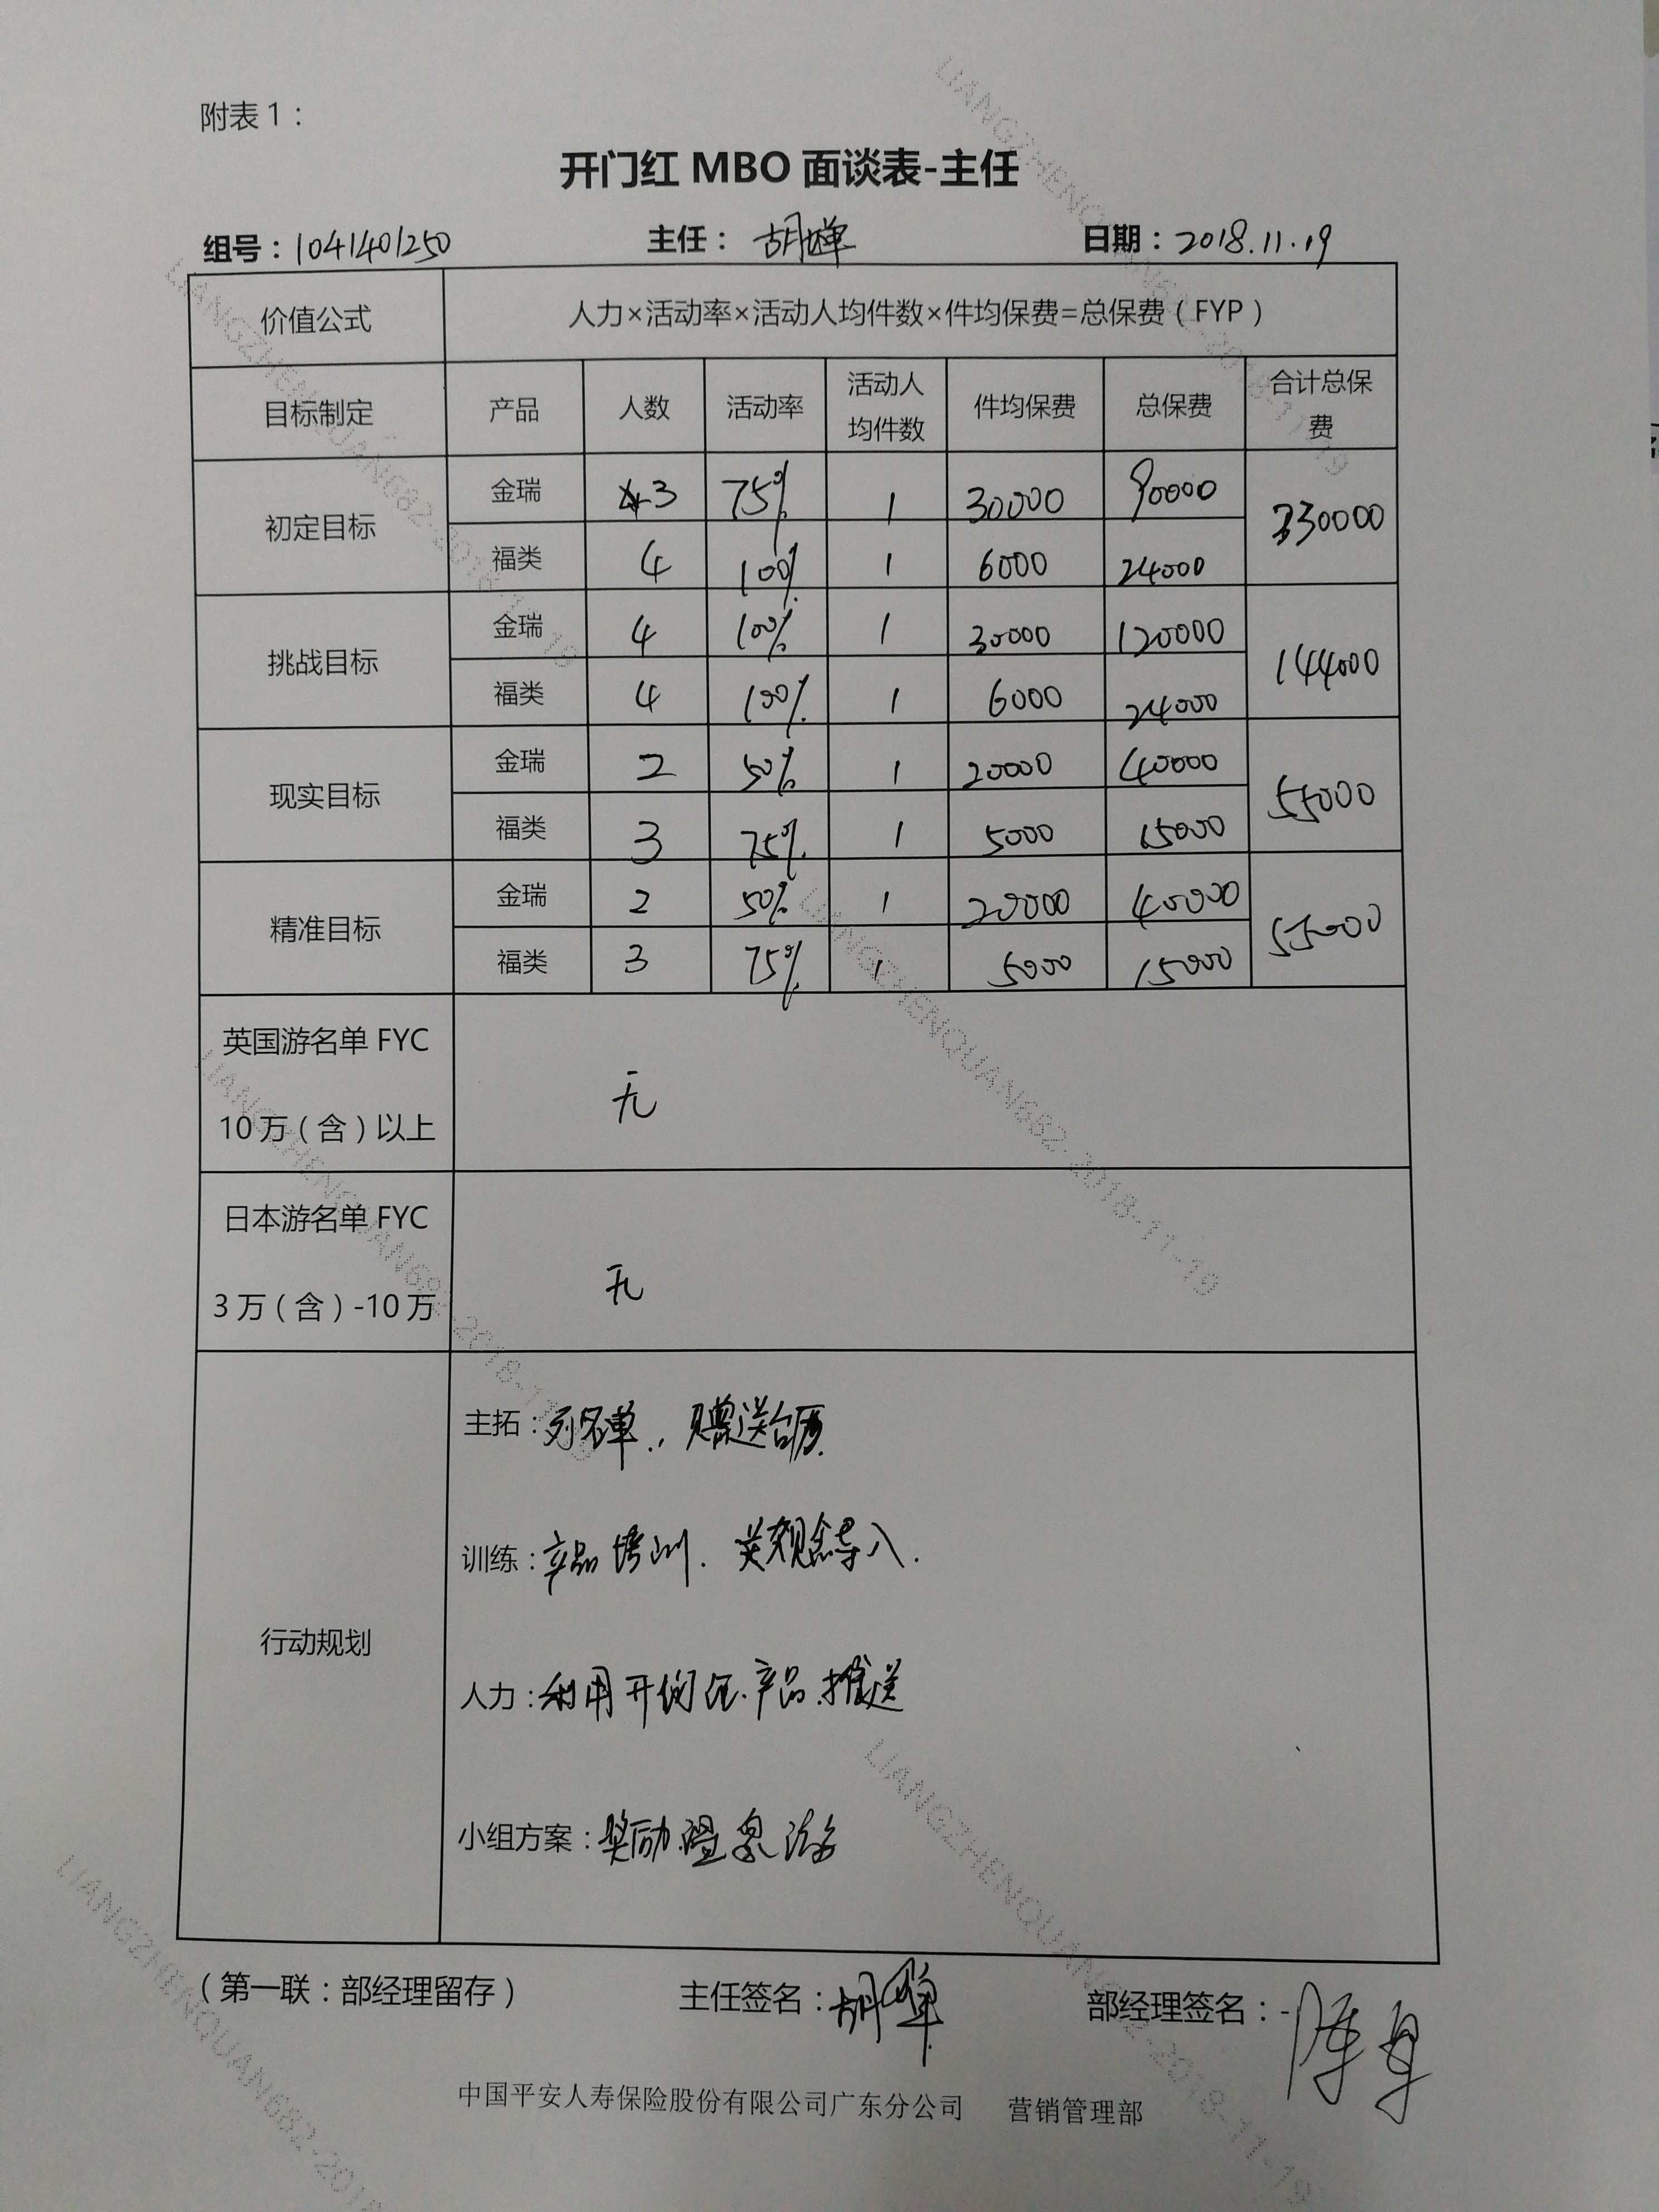 附表1：
开门红 MBO 面谈表-主任
组号：1041401250 主任：胡婵 日期：2018.11.19
价值公式 人力×活动率×活动人均件数×件均保费=总保费（FYP）
目标制定 产品 人数 活动率 活动人均件数 件均保费 总保费 合计总保费
初定目标 金瑞 3 75% 1 30000 90000 330000
福类 4 100% 1 6000 24000
挑战目标 金瑞 4 100% 1 30000 120000 144000
福类 4 100% 1 6000 24000
现实目标 金瑞 2 50% 1 20000 40000 55000
福类 3 75% 1 5000 15000
精准目标 金瑞 2 50% 1 20000 40000 55000
福类 3 75% 1 5000 15000
英国游名单 FYC
10万（含）以上
无
日本游名单 FYC
3万（含）-10万
无
行动规划
主拓：列名单，赠送台历.
训练：产品培训. 观念导入.
人力：利用开门红.产品.推送
小组方案：奖励温泉游
（第一联：部经理留存） 主任签名：胡婵 部经理签名：
中国平安人寿保险股份有限公司广东分公司 营销管理部
LIANGZHENQUAN682-2018-11-19
LIANGZHENQUAN682-2018-11-19
LIANGZHENQUAN682-2018-11-19
LIANGZHENQUAN682-2018-11-19
LIANGZHENQUAN682-2018-11-19
LIANGZHENQUAN682-2018